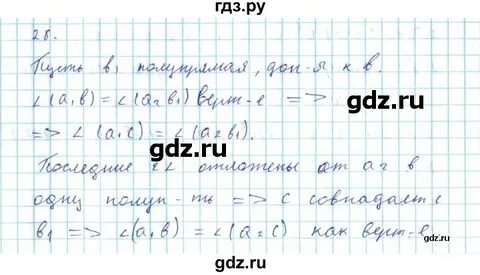 гдз.рф
28.
Пусть в₁ полупрямая, доп-я к в.
∠(a₁b) = ∠(a₂b₁) верт-е =>
=> ∠(a₁c) = ∠(a₂b₁).
gdz.ru
Последние 2∠ отложены от a₂ в
одну полуп-ть => с совпадает с
в₁ => ∠(a₁b) = ∠(a₂c) как верт-е
gdz.ru
gdz.ru